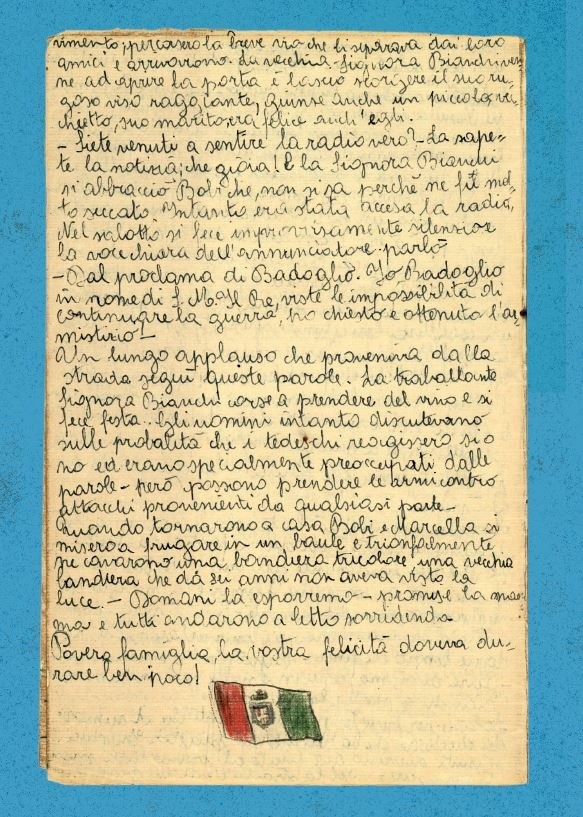 vimento, percorsero la breve via che li separava dai loro
amici e arrivarono. La vecchia Signora Bianchi ven
ne ad aprire la porta e lasciò scorgere il suo ru-
goso viso raggiante, giunse anche un piccolo vec
chietto, suo marito, era felice anch'egli.
- Siete venuti a sentire la radio vero? - La sape-
te la notizia; che gioia! E la Signora Bianchi
si abbracciò Bobi che, non si sa perché ne fu mol-
to seccato. Intanto era stata accesa la radio,
Nel salotto si fece improvvisamente silenzio e
la voce chiara dell'annunciatore parlò
- Dal proclama di Badoglio. Io Badoglio
in nome di S. M. Il Re, viste le impossibilità di
continuare la guerra, ho chiesto e ottenuto l'ar-
mistizio! -
Un lungo applauso che proveniva dalla
strada seguì queste parole. La traballante
Signora Bianchi corse a prendere del vino e si
fece festa. Gli uomini intanto discutevano
sulle probalità che i tedeschi reagissero si o
no ed erano specialmente preoccupati dalle
parole - però possono prendere le armi contro
attacchi provenienti da qualsiasi parte -
Quando tornarono a casa Bobi e Marcella si
misero a frugare in un baule e trionfalmente
ne cavarono una bandiera tricolore! una vecchia
bandiera che da sei anni non aveva visto la
luce. - Domani la esporremo - promise la mam-
ma e tutti andarono a letto sorridendo
Povera famiglia, la vostra felicità doveva du-
rare ben poco!